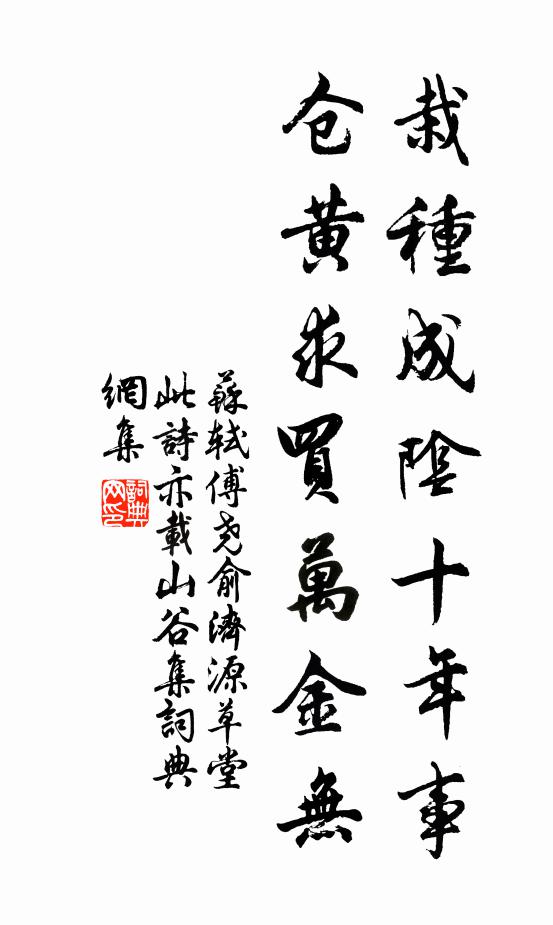 栽種成陰十年事
仓黄求買萬金無
蘇軾傅堯俞濟源草堂
此詩亦載山谷集詞典
網集
詞典
网印